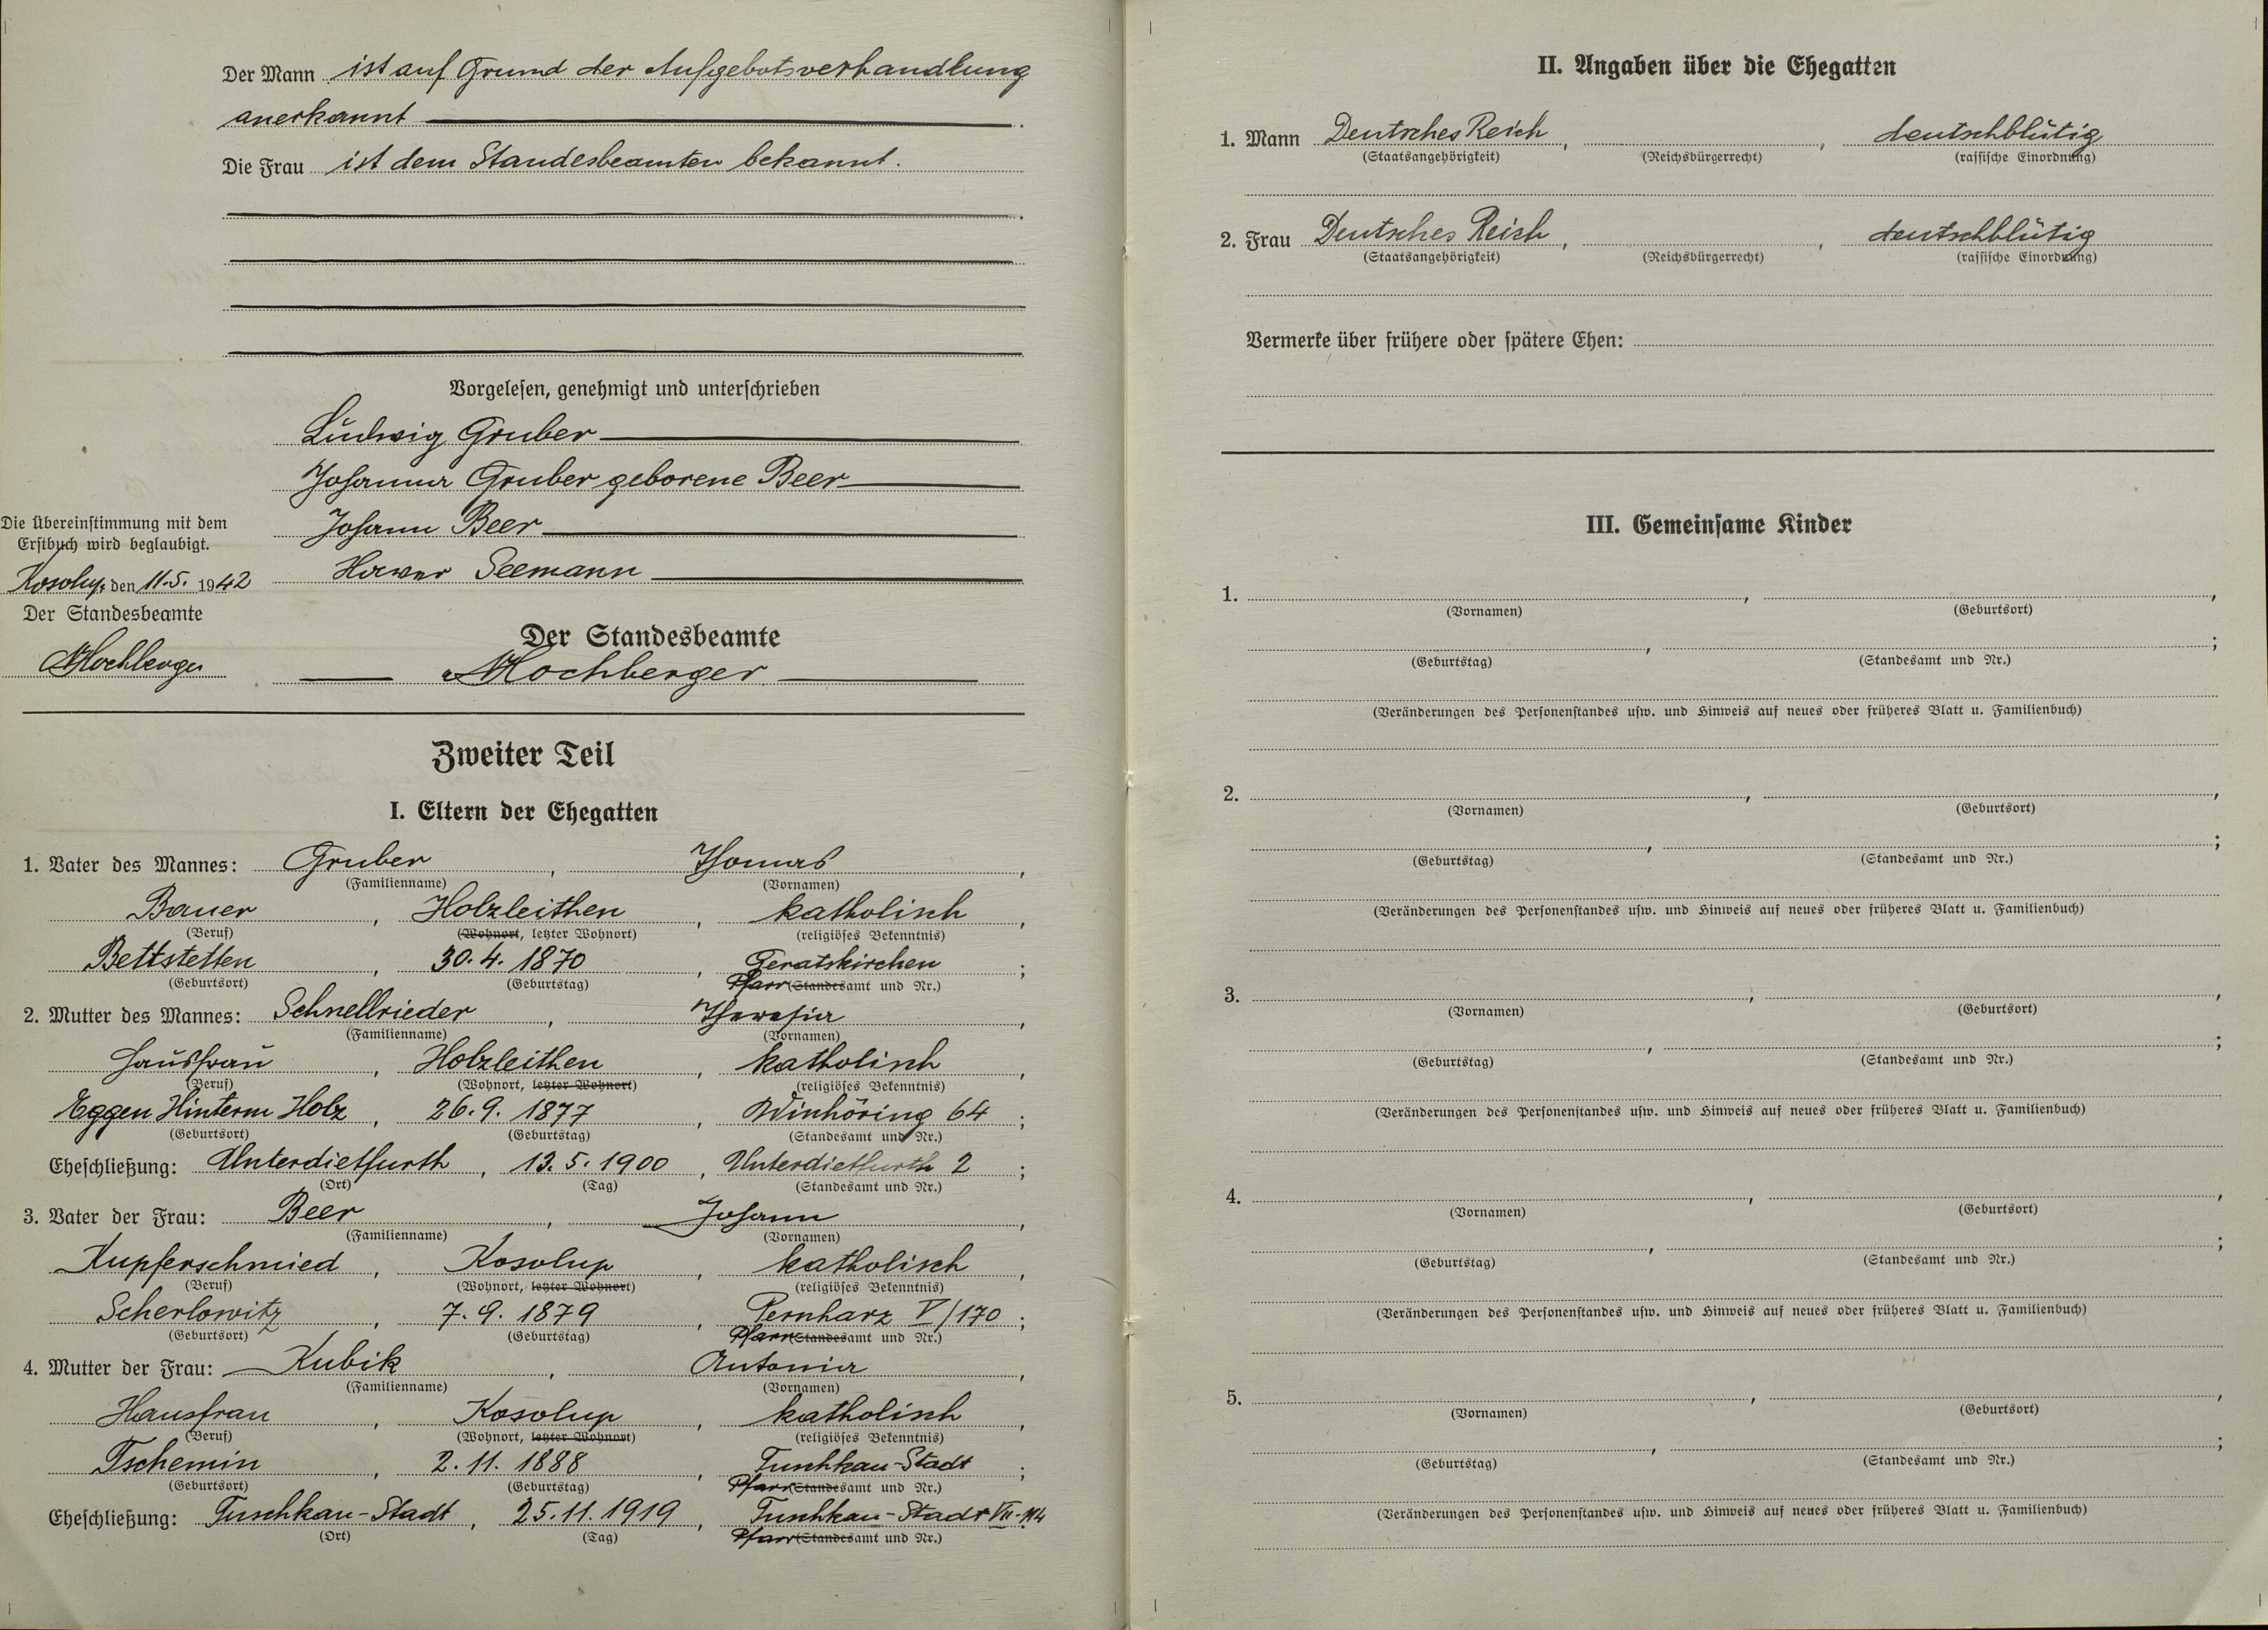 Der Mann ist auf Grund der Aufgebotsverhandlung
anerkannt
Die Frau ist dem Standesbeamten bekannt.
Vorgelesen, genehmigt und unterschrieben
Ludwig Gruber
Johanna Gruber geborene Beer
Johann Beer
Seemann
Die Übereinstimmung mit dem
Erstbuch wird beglaubigt.
Kosolup, den 11.5. 1942
Der Standesbeamte
Hochberger
Der Standesbeamte
Hochberger
Zweiter Teil
I. Eltern der Ehegatten
1. Vater des Mannes: Gruber, Thomas,
(Familienname) (Vornamen)
Bauer, Holzleithen, katholisch,
(Beruf) (Wohnort, letzter Wohnort) (religiöses Bekenntnis)
Bettstetten, 30.4.1870, Geratskirchen;
(Geburtsort) (Geburtstag) Pfarr (Standesamt und Nr.)
2. Mutter des Mannes: Schnellrieder, Theresia,
(Familienname) (Vornamen)
Hausfrau, Holzleithen, katholisch,
(Beruf) (Wohnort, letzter Wohnort) (religiöses Bekenntnis)
Eggen Hinterm Holz, 26.9.1877, Winhöring 64;
(Geburtsort) (Geburtstag) (Standesamt und Nr.)
Eheschließung: Unterdietfurth, 13.5.1900, Unterdietfurth 2;
(Ort) (Tag) (Standesamt und Nr.)
3. Vater der Frau: Beer, Johann,
(Familienname) (Vornamen)
Kupferschmied, Kosolup, katholisch,
(Beruf) (Wohnort, letzter Wohnort) (religiöses Bekenntnis)
Scherlowitz, 7.9.1879, Pernharz V/170;
(Geburtsort) (Geburtstag) Pfarr (Standesamt und Nr.)
4. Mutter der Frau: Kubik, Antonia,
(Familienname) (Vornamen)
Hausfrau, Kosolup, katholisch,
(Beruf) (Wohnort, letzter Wohnort) (religiöses Bekenntnis)
Tschemin, 2.11.1888, Tuschkau-Stadt;
(Geburtsort) (Geburtstag) Pfarr (Standesamt und Nr.)
Eheschließung: Tuschkau-Stadt, 25.11.1919, Tuschkau-Stadt
(Ort) (Tag) Pfarr (Standesamt und Nr.)
II. Angaben über die Ehegatten
1. Mann Deutsches Reich, , deutschblütig
(Staatsangehörigkeit) (Reichsbürgerrecht) (rassische Einordnung)
2. Frau Deutsches Reich, , deutschblütig
(Staatsangehörigkeit) (Reichsbürgerrecht) (rassische Einordnung)
Vermerke über frühere oder spätere Ehen:
III. Gemeinsame Kinder
1. , ,
(Vornamen) (Geburtsort)
, ;
(Geburtstag) (Standesamt und Nr.)
(Veränderungen des Personenstandes usw. und Hinweis auf neues oder früheres Blatt u. Familienbuch)
2. , ,
(Vornamen) (Geburtsort)
, ;
(Geburtstag) (Standesamt und Nr.)
(Veränderungen des Personenstandes usw. und Hinweis auf neues oder früheres Blatt u. Familienbuch)
3. , ,
(Vornamen) (Geburtsort)
, ;
(Geburtstag) (Standesamt und Nr.)
(Veränderungen des Personenstandes usw. und Hinweis auf neues oder früheres Blatt u. Familienbuch)
4. , ,
(Vornamen) (Geburtsort)
, ;
(Geburtstag) (Standesamt und Nr.)
(Veränderungen des Personenstandes usw. und Hinweis auf neues oder früheres Blatt u. Familienbuch)
5. , ,
(Vornamen) (Geburtsort)
, ;
(Geburtstag) (Standesamt und Nr.)
(Veränderungen des Personenstandes usw. und Hinweis auf neues oder früheres Blatt u. Familienbuch)